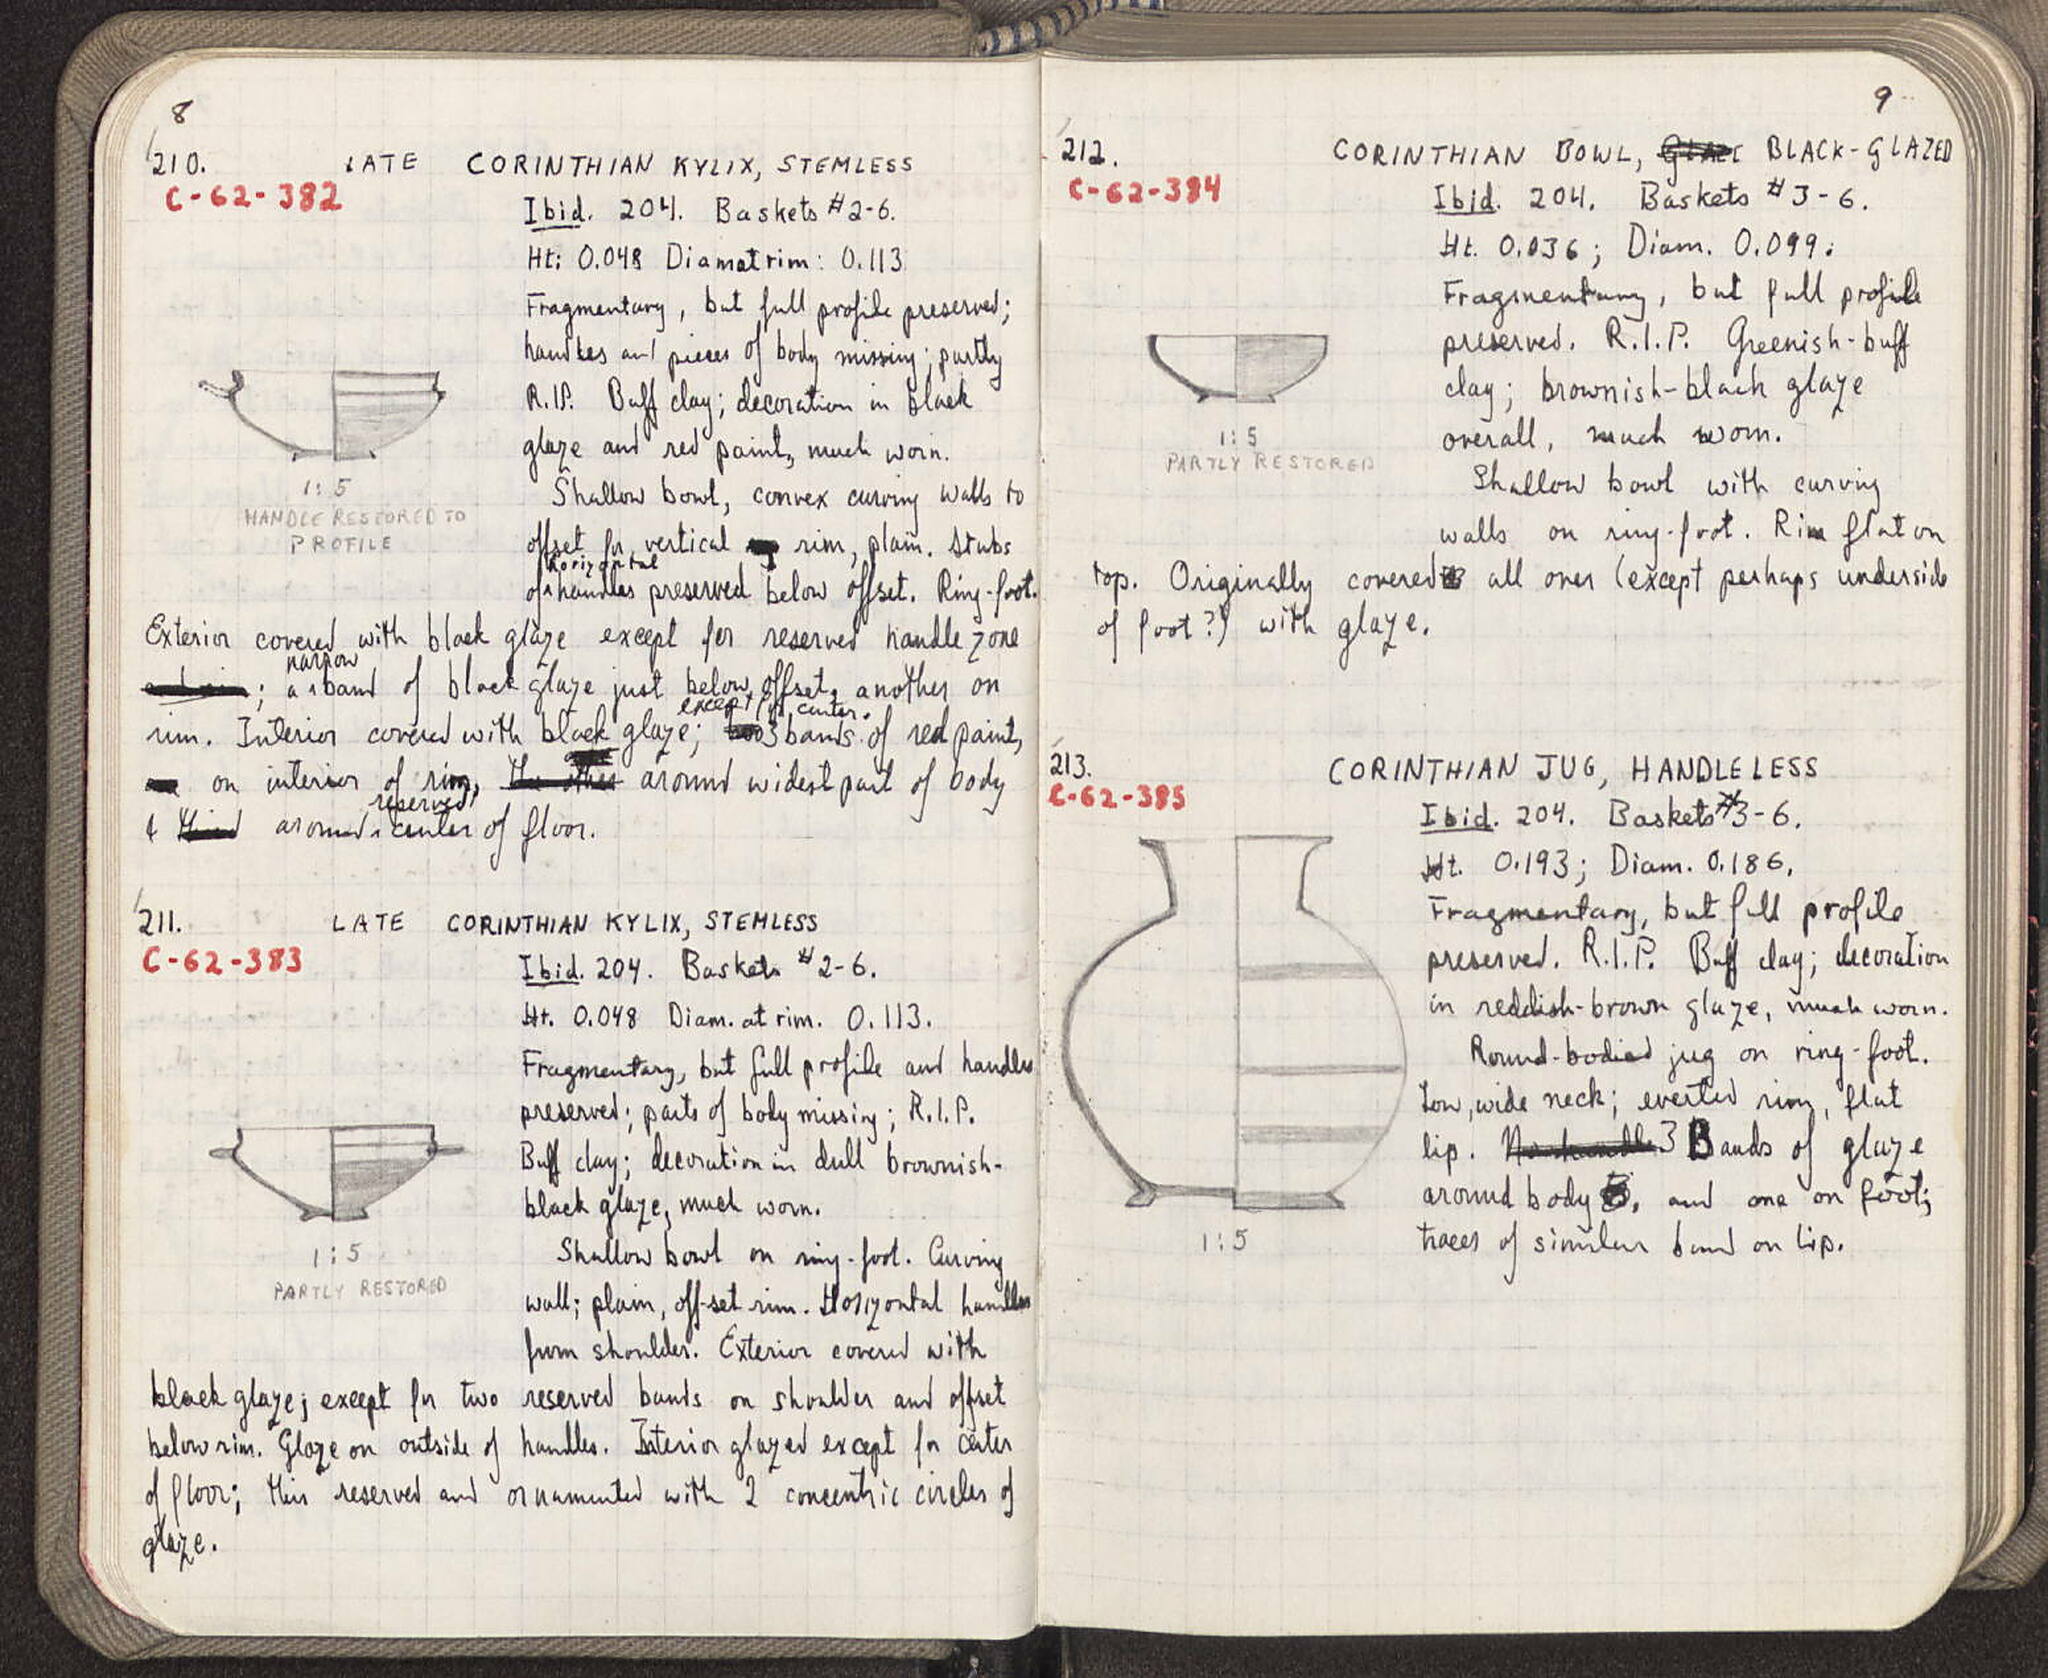 8
210. LATE CORINTHIAN KYLIX, STEMLESS
C-62-382
Ibid. 204. Baskets #2-6.
Ht: 0.048 Diam at rim: 0.113
Fragmentary, but full profile preserved;
handles and pieces of body missing; partly
R.I.P. Buff clay; decoration in black
glaze and red paint, much worn.
Shallow bowl, convex curving walls to
offset for vertical rim, plain. Stubs
of horizontal handles preserved below offset. Ring-foot.
1:5
HANDLE RESTORED TO
PROFILE
Exterior covered with black glaze except for reserved handle zone
; a narrow band of black glaze just below offset, another on
rim. Interior covered with black glaze; except for center. 3 bands of red paint,
on interior of rim, around widest part of body
& around reserved center of floor.
211. LATE CORINTHIAN KYLIX, STEMLESS
C-62-383
Ibid. 204. Baskets #2-6.
Ht. 0.048 Diam. at rim. 0.113.
Fragmentary, but full profile and handles
preserved; parts of body missing; R.I.P.
Buff clay; decoration in dull brownish-
black glaze, much worn.
Shallow bowl on ring-foot. Curving
wall; plain, off-set rim. Horizontal handles
from shoulder. Exterior covered with
1:5
PARTLY RESTORED
black glaze; except for two reserved bands on shoulder and offset
below rim. Glaze on outside of handles. Interior glazed except for center
of floor; this reserved and ornamented with 2 concentric circles of
glaze.
9
212. CORINTHIAN BOWL, GLAZE BLACK-GLAZED
C-62-384
Ibid. 204. Baskets #3-6.
Ht. 0.036; Diam. 0.099.
Fragmentary, but full profile
preserved. R.I.P. Greenish-buff
clay; brownish-black glaze
overall, much worn.
Shallow bowl with curving
walls on ring-foot. Rim flat on
1:5
PARTLY RESTORED
top. Originally covered all over (except perhaps underside
of foot?) with glaze.
213. CORINTHIAN JUG, HANDLELESS
C-62-385
Ibid. 204. Baskets #3-6.
Ht. 0.193; Diam. 0.186.
Fragmentary, but full profile
preserved. R.I.P. Buff clay; decoration
in reddish-brown glaze, much worn.
Round-bodied jug on ring-foot.
Low, wide neck; everted rim, flat
lip. No handle. 3 Bands of glaze
around body, and one on foot;
traces of similar band on lip.
1:5